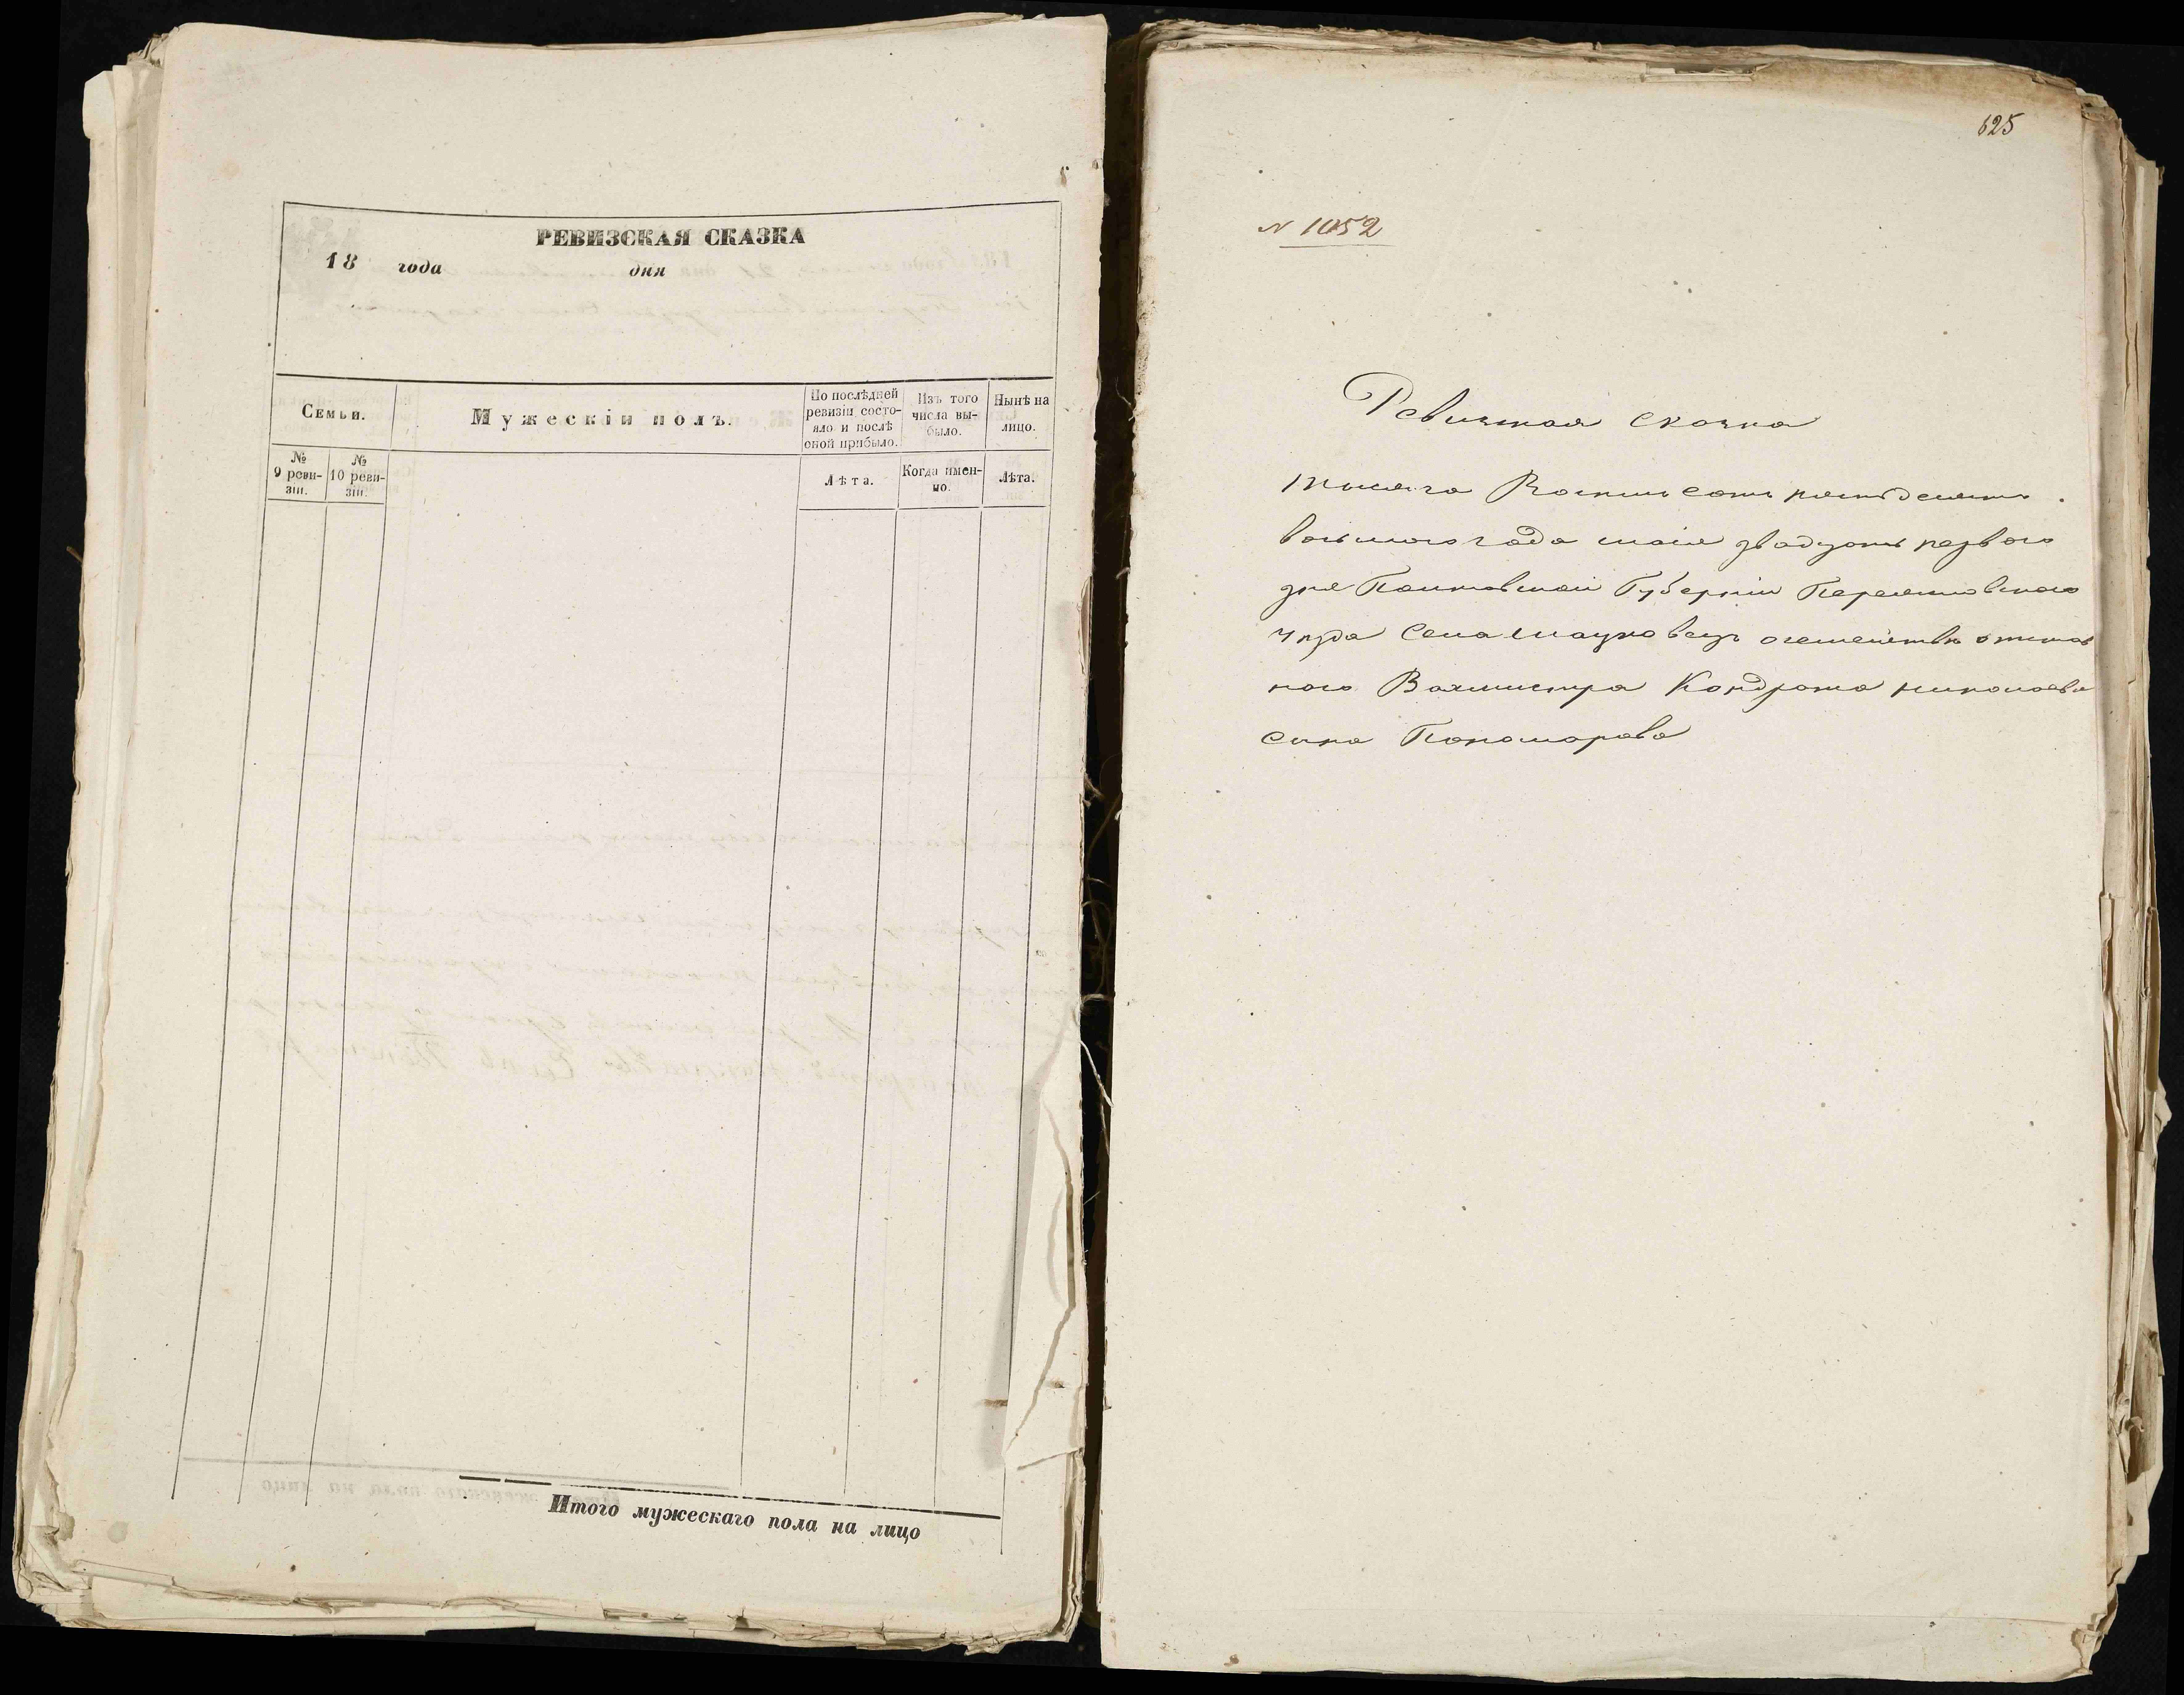 РЕВИЗСКАЯ СКАЗКА
18 года дня
Семьи.
Мужескій полъ.
По послѣдней ревизіи состояло и послѣ оной прибыло.
Изъ того числа выбыло.
Нынѣ на лицо.
№ 9 ревизіи.
№ 10 ревизіи.
Лѣта.
Когда именно.
Лѣта.
Итого мужескаго пола на лицо
625
N 1052
Ревизкая сказка
тысяча Восемьсотъ пятьдесятъ
восьмого года маія двадцать первого
дня Полтавской Губерніи Переяславского
уезда Села Мацковецъ осемействѣ отстав
ного Вахмистра Кондрата николаева
сына Пономарова